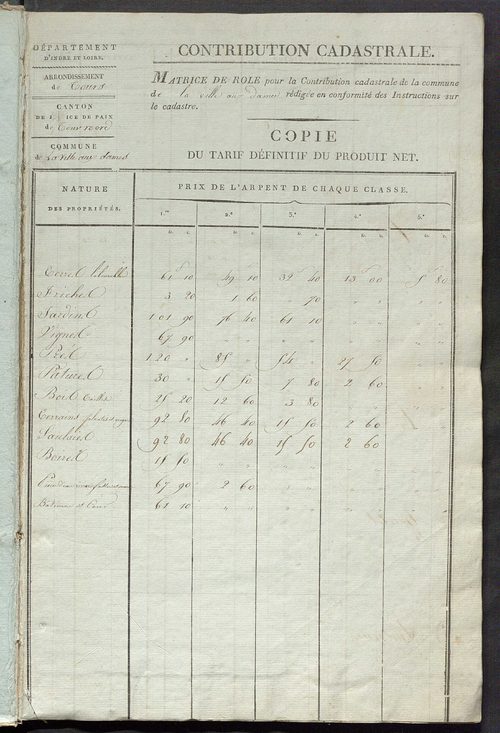 DÉPARTEMENT
D'INDRE ET LOIRE.
ARRONDISSEMENT
de Tours
CANTON
DE JUSTICE DE PAIX
de
COMMUNE
de La Ville aux dames
CONTRIBUTION CADASTRALE.
MATRICE DE ROLE pour la Contribution cadastrale de la commune
de la ville aux dames rédigée en conformité des Instructions sur
le cadastre.
COPIE
DU TARIF DÉFINITIF DU PRODUIT NET.
NATURE
DES PROPRIÉTÉS.
PRIX DE L'ARPENT DE CHAQUE CLASSE.
1.re 2.e 3.e 4.e 5.e
F. C. F. C. F. C. F. C. F. C.
Terres labourables 61 10 49 10 32 40 13 00 5 80
Friches 3 20 1 60 " 70 " " " "
Jardins 101 90 76 40 61 10 " " " "
Vignes 67 90 " " " " " " " "
Prés 120 " 85 " 54 " 27 50 " "
Pâtures 30 " 15 50 7 80 2 60 " "
Bois 25 20 12 60 3 80 " " " "
Terrains plantés 92 80 46 40 15 50 2 60 " "
Saulaies 92 80 46 40 15 50 2 60 " "
15 50 " " " " " " " "
67 90 2 60 " " " " " "
Batimens et Cours 61 10 " " " " " " " "